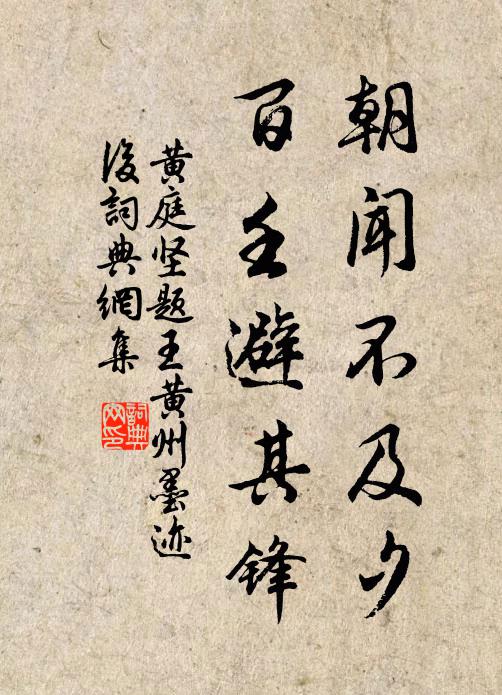 朝闻不及夕
百壬避其锋
黄庭坚题王黄州墨迹
后詞典網集
詞典网印